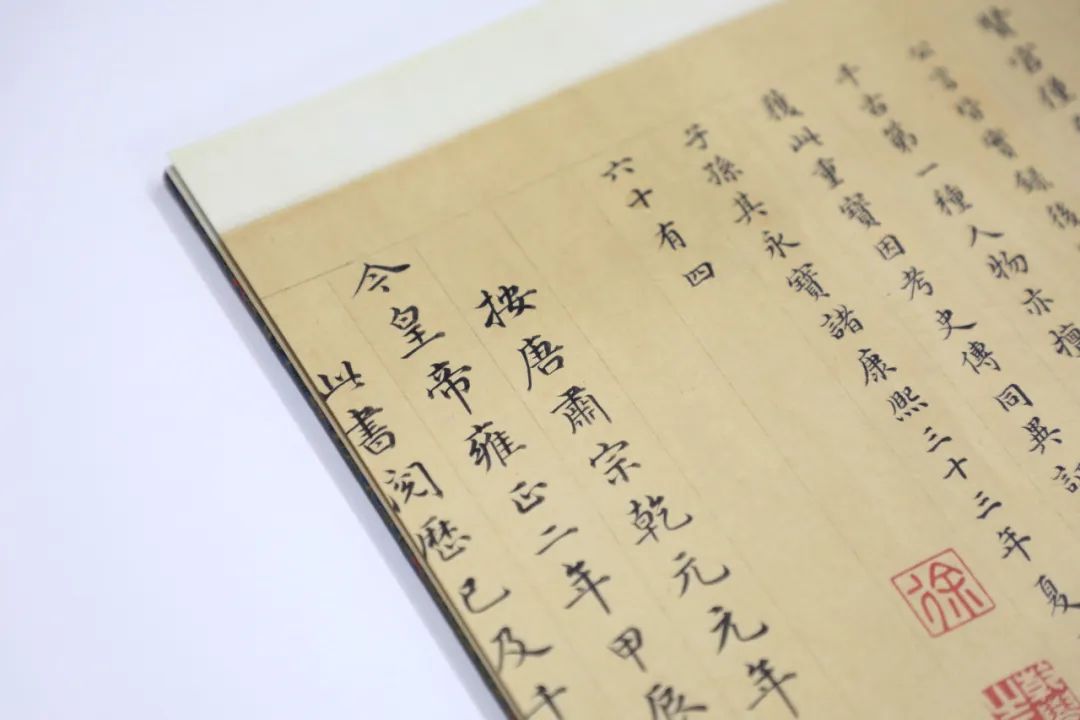 賢官僅
公言皆實録後
千古第一種人物亦擅
獲此重寶因考史傳同異
子孫其永寶諸康熙三十三年夏
六十有四
徐
按唐肅宗乾元元年
今皇帝雍正二年甲辰
此書閱歷已及千